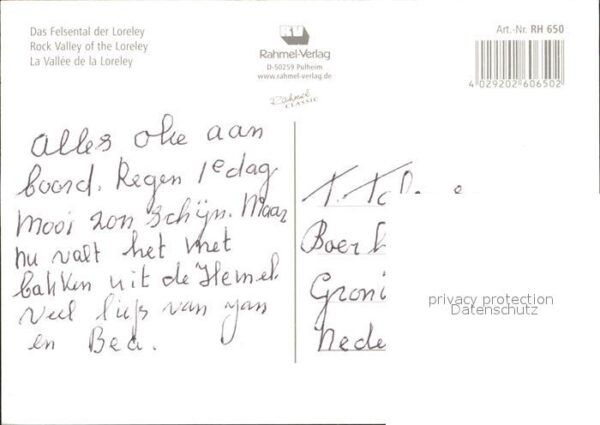 Das Felsental der Loreley
Rock Valley of the Loreley
La Vallée de la Loreley
RV
Rahmel-Verlag
D-50259 Pulheim
www.rahmel-verlag.de
Rahmel
CLASSIC
Art.-Nr. RH 650
4 029202 606502
Alles oke aan
boord. Regen 1e dag
Mooi zon schijn. Maar
nu valt het met
bakken uit de Hemel.
Veel liefs van Jan
en Bea.
T.
Boer
Groni
Nede
privacy protection
Datenschutz